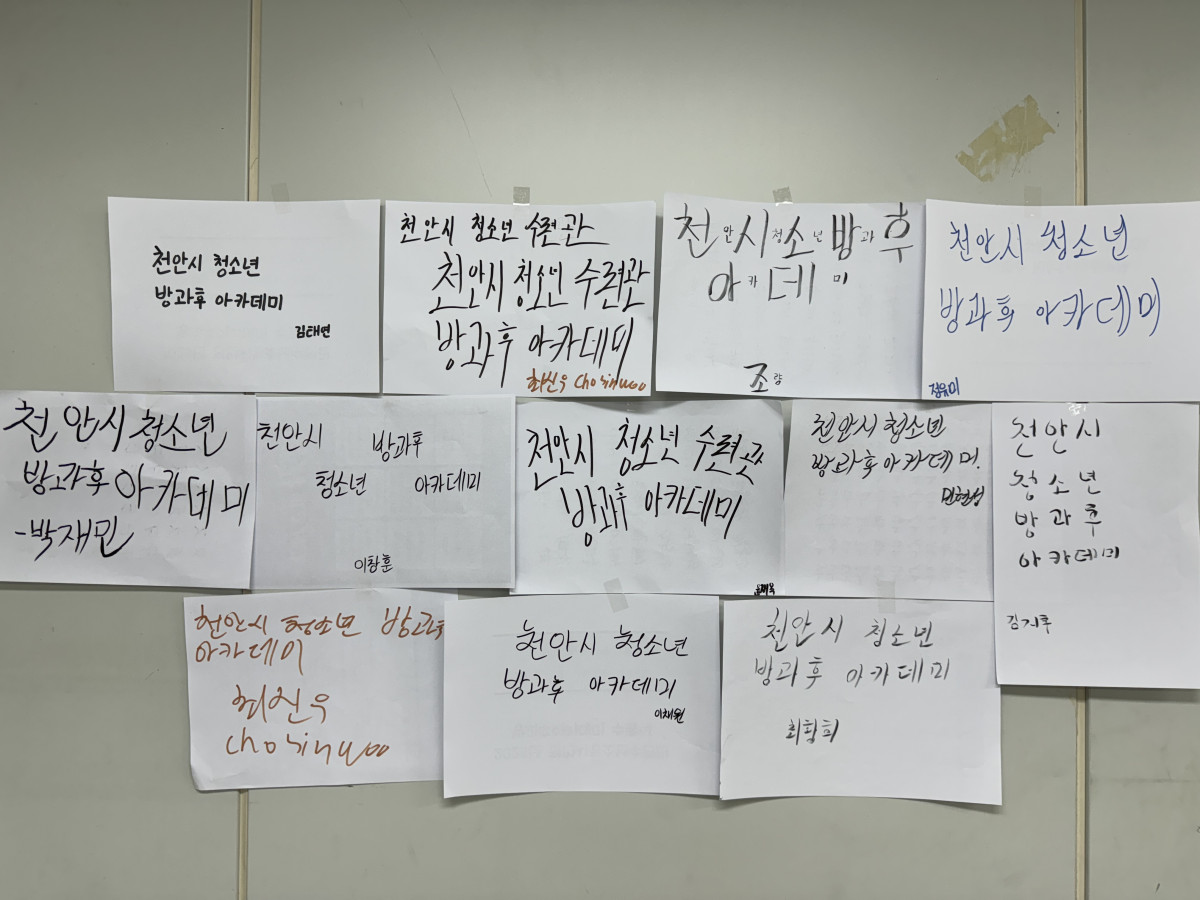 천안시 청소년
방과후 아카데미
김태연
천안시 청소년 수련관
천안시 청소년 수련관
방과후 아카데미
최신우 Chosinwoo
천안시청소년방과후
아카데미
조량
천안시 청소년
방과후 아카데미
정유미
천안시 청소년
방과후 아카데미
-박재민
천안시 방과후
청소년 아카데미
이창훈
천안시 청소년 수련관
방과후 아카데미
천안시 청소년
방과후 아카데미.
민현성
천안시
청소년
방과후
아카데미
김지후
천안시 청소년 방과후
아카데미
최신우
chosinwoo
천안시 청소년
방과후 아카데미
이채원
천안시 청소년
방과후 아카데미